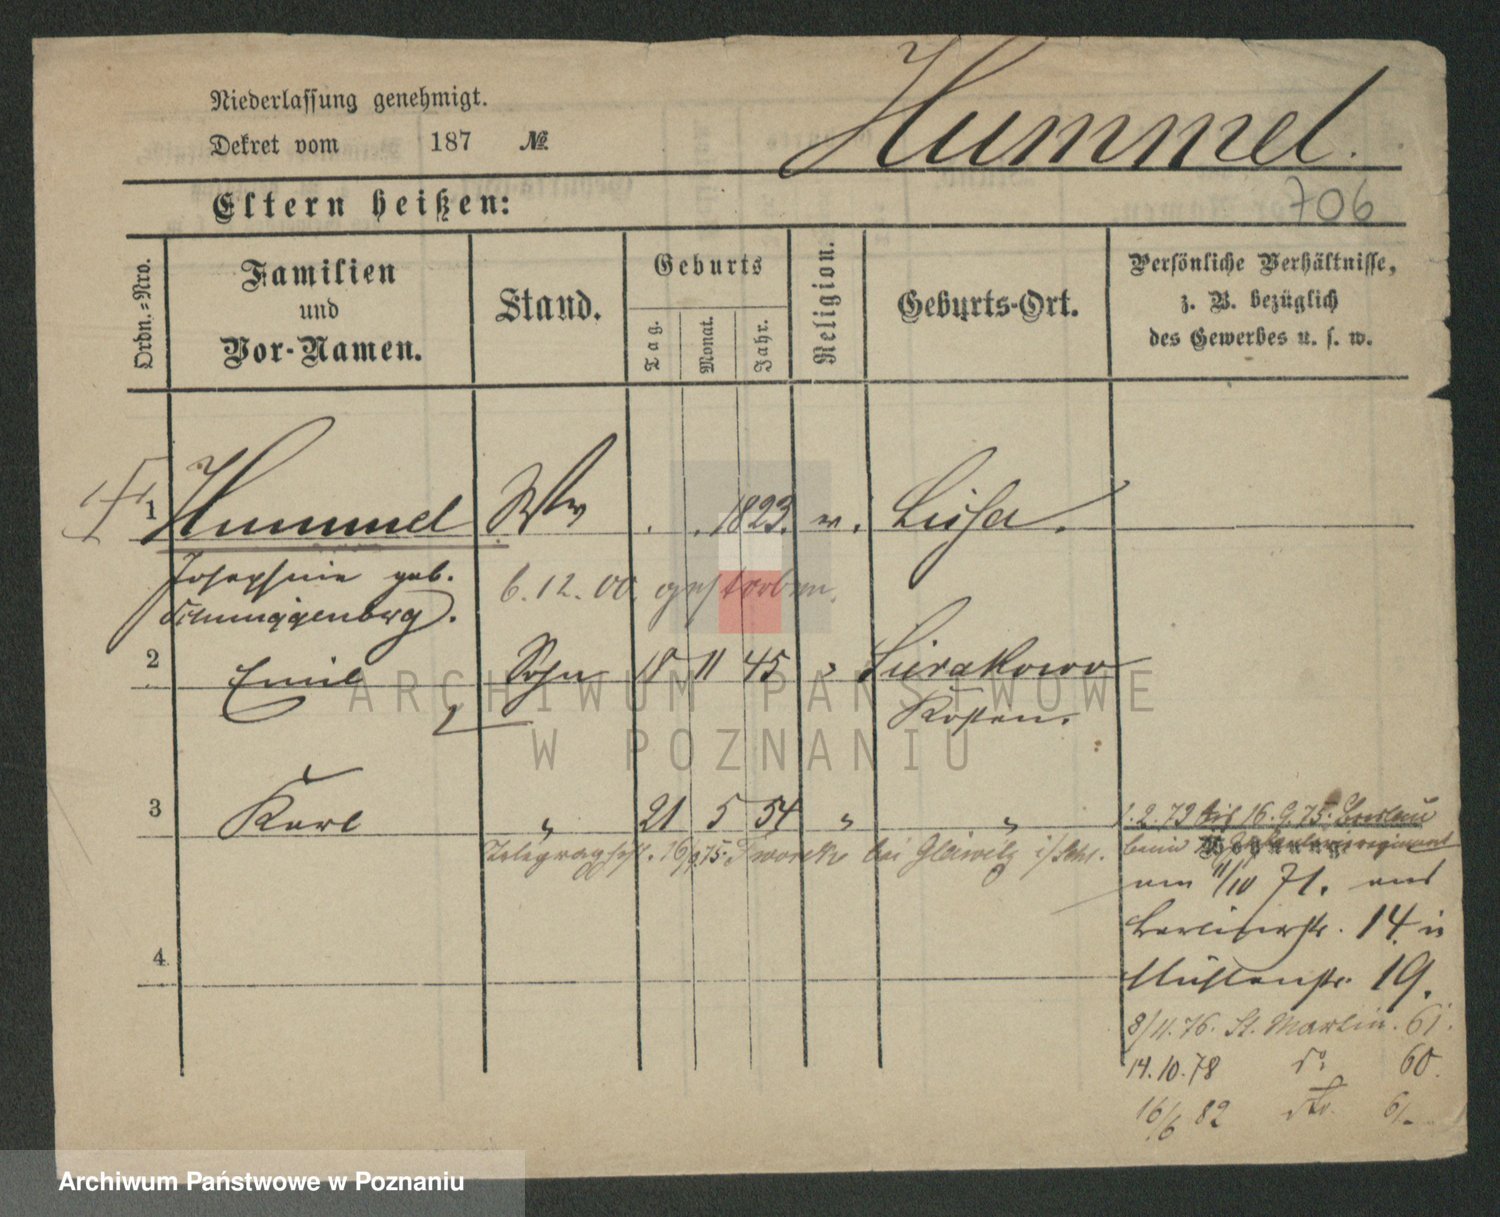 Niederlassung genehmigt.
Dekret vom 187 №
Hummel.
706
Eltern heißen:
Ordn.=Nro.
Familien
und
Vor-Namen.
Stand.
Geburts
Tag.
Monat.
Jahr.
Religion.
Geburts-Ort.
Persönliche Verhältnisse,
z. B. bezüglich
des Gewerbes u. s. w.
1 Hummel Ww . . 1823.
Josephine geb.
6.12.00. gestorben.
2 Emil Sohn 18 11 45 " Sierakowo
Kosten.
3 Karl " 21 5 54 " "
1.2.73 bis 16.9.75. Breslau
Telegraphist. 16/9 75. bei Gleiwitz
beim
am 11/10 71. aus
Berlinerstr. 14. in
4
Mühlenstr. 19.
8/11.76. St. Martin. 61.
14.10.78 do 60.
16/6 82 dto. 61.
ARCHIWUM PAŃSTWOWE
W POZNANIU
Archiwum Państwowe w Poznaniu